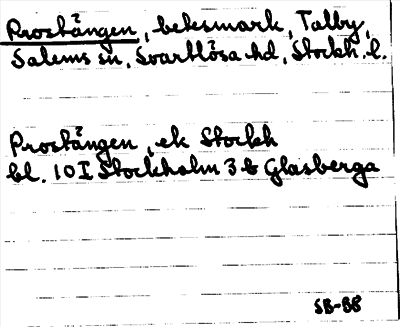 Prostängen, beksmark, Talby,
Salems sn, Svartlösa hd, Stockh. l.
Prostängen, ek Stockh
bl. 10I Stockholm 3 b Glasberga
SB-88